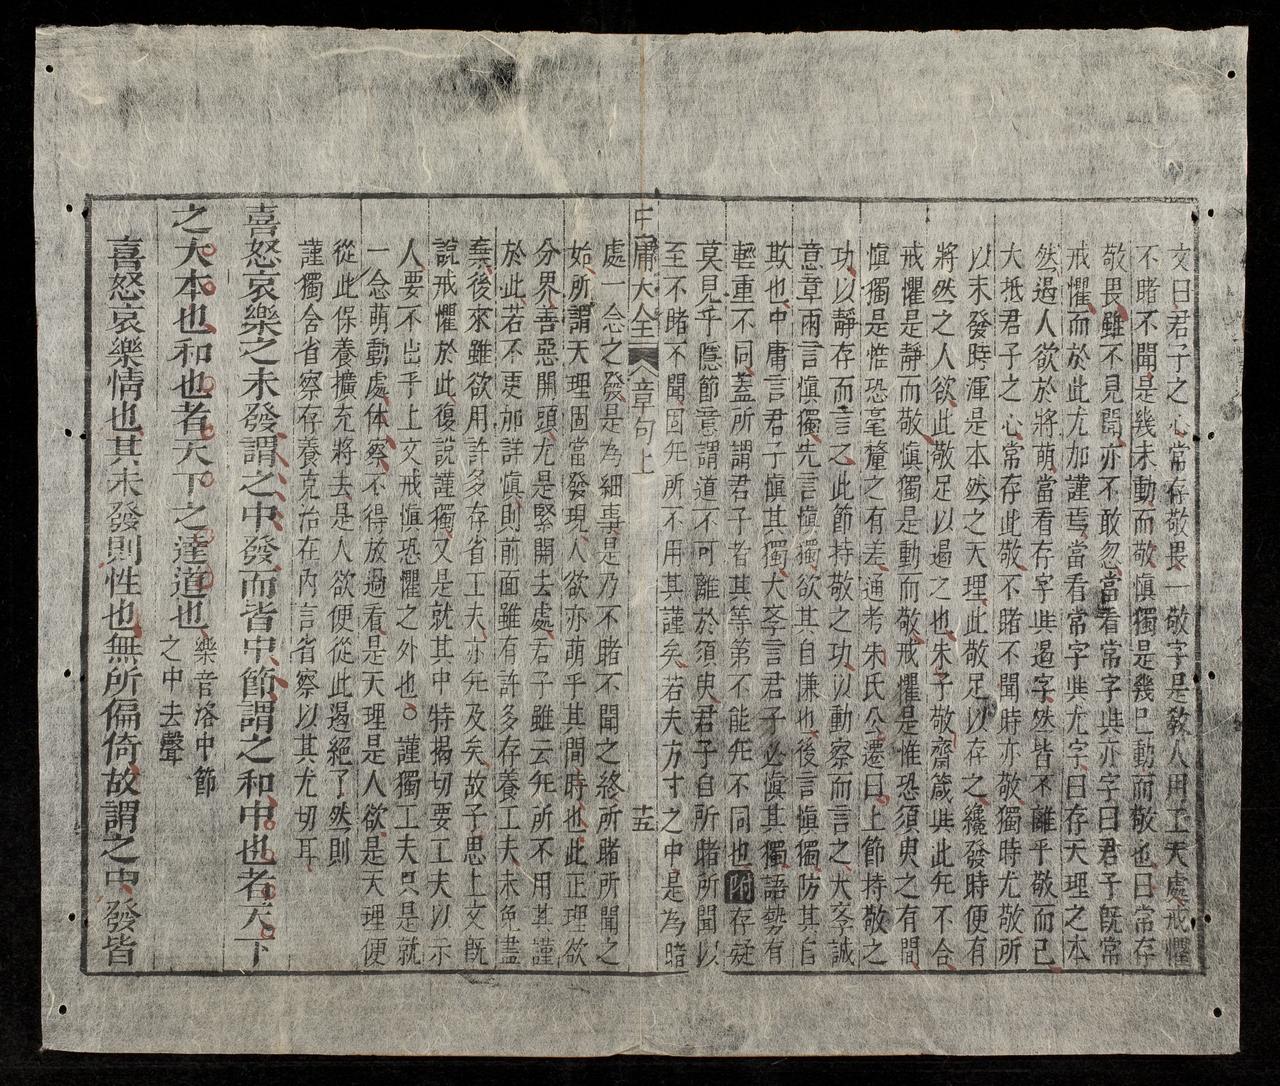 文曰君子之心常存敬畏一敬字是教人用工夫處戒懼
不睹不聞是幾未動而敬慎獨是幾已動而敬也曰常存
敬畏雖不見聞亦不敢忽當看常字與亦字曰君子既常
戒懼而於此尤加謹焉當看常字與尤字曰存天理之本
然遏人欲於將萌當看存字與遏字然皆不離乎敬而已
大抵君子之心常存此敬不睹不聞時亦敬獨時尤敬所
以未發時渾是本然之天理此敬足以存之纔發時便有
將然之人欲此敬足以遏之也朱子敬齋箴與此年不合
戒懼是靜而敬慎獨是動而敬戒懼是惟恐須臾之有間
慎獨是惟恐毫釐之有差通考朱氏公遷曰上節持敬之
功以靜存而言之此節持敬之功以動察而言之大學誠
意章兩言慎獨先言慎獨欲其自慊也後言慎獨防其自
欺也中庸言君子慎其獨大學言君子必慎其獨語勢有
輕重不同蓋所謂君子者其等第不能无不同也附存疑
莫見乎隱節意謂道不可離於須臾君子自所睹所聞以
至不睹不聞固无所不用其謹矣若夫方寸之中是為暗
中庸大全 章句上 十五
處一念之發是為細事是乃不睹不聞之終所睹所聞之
始所謂天理固當發現人欲亦萌乎其間時也此正理欲
分界善惡開頭尤是緊開去處君子雖云无所不用其謹
於此若不更加詳慎則前面雖有許多存養工夫未免盡
棄後來雖欲用許多存省工夫亦无及矣故子思上文既
說戒懼於此復說謹獨又是就其中特揭切要工夫以示
人要不出乎上文戒慎恐懼之外也○謹獨工夫只是就
一念萌動處体察不得放過看是天理是人欲是天理便
從此保養擴充將去是人欲便從此遏絕了然則
謹獨含省察存養克治在內言省察以其尤切耳
喜怒哀樂之未發謂之中發而皆中節謂之和中也者天下
之大本也和也者天下之達道也樂音洛中節之中去聲
喜怒哀樂情也其未發則性也無所偏倚故謂之中發皆